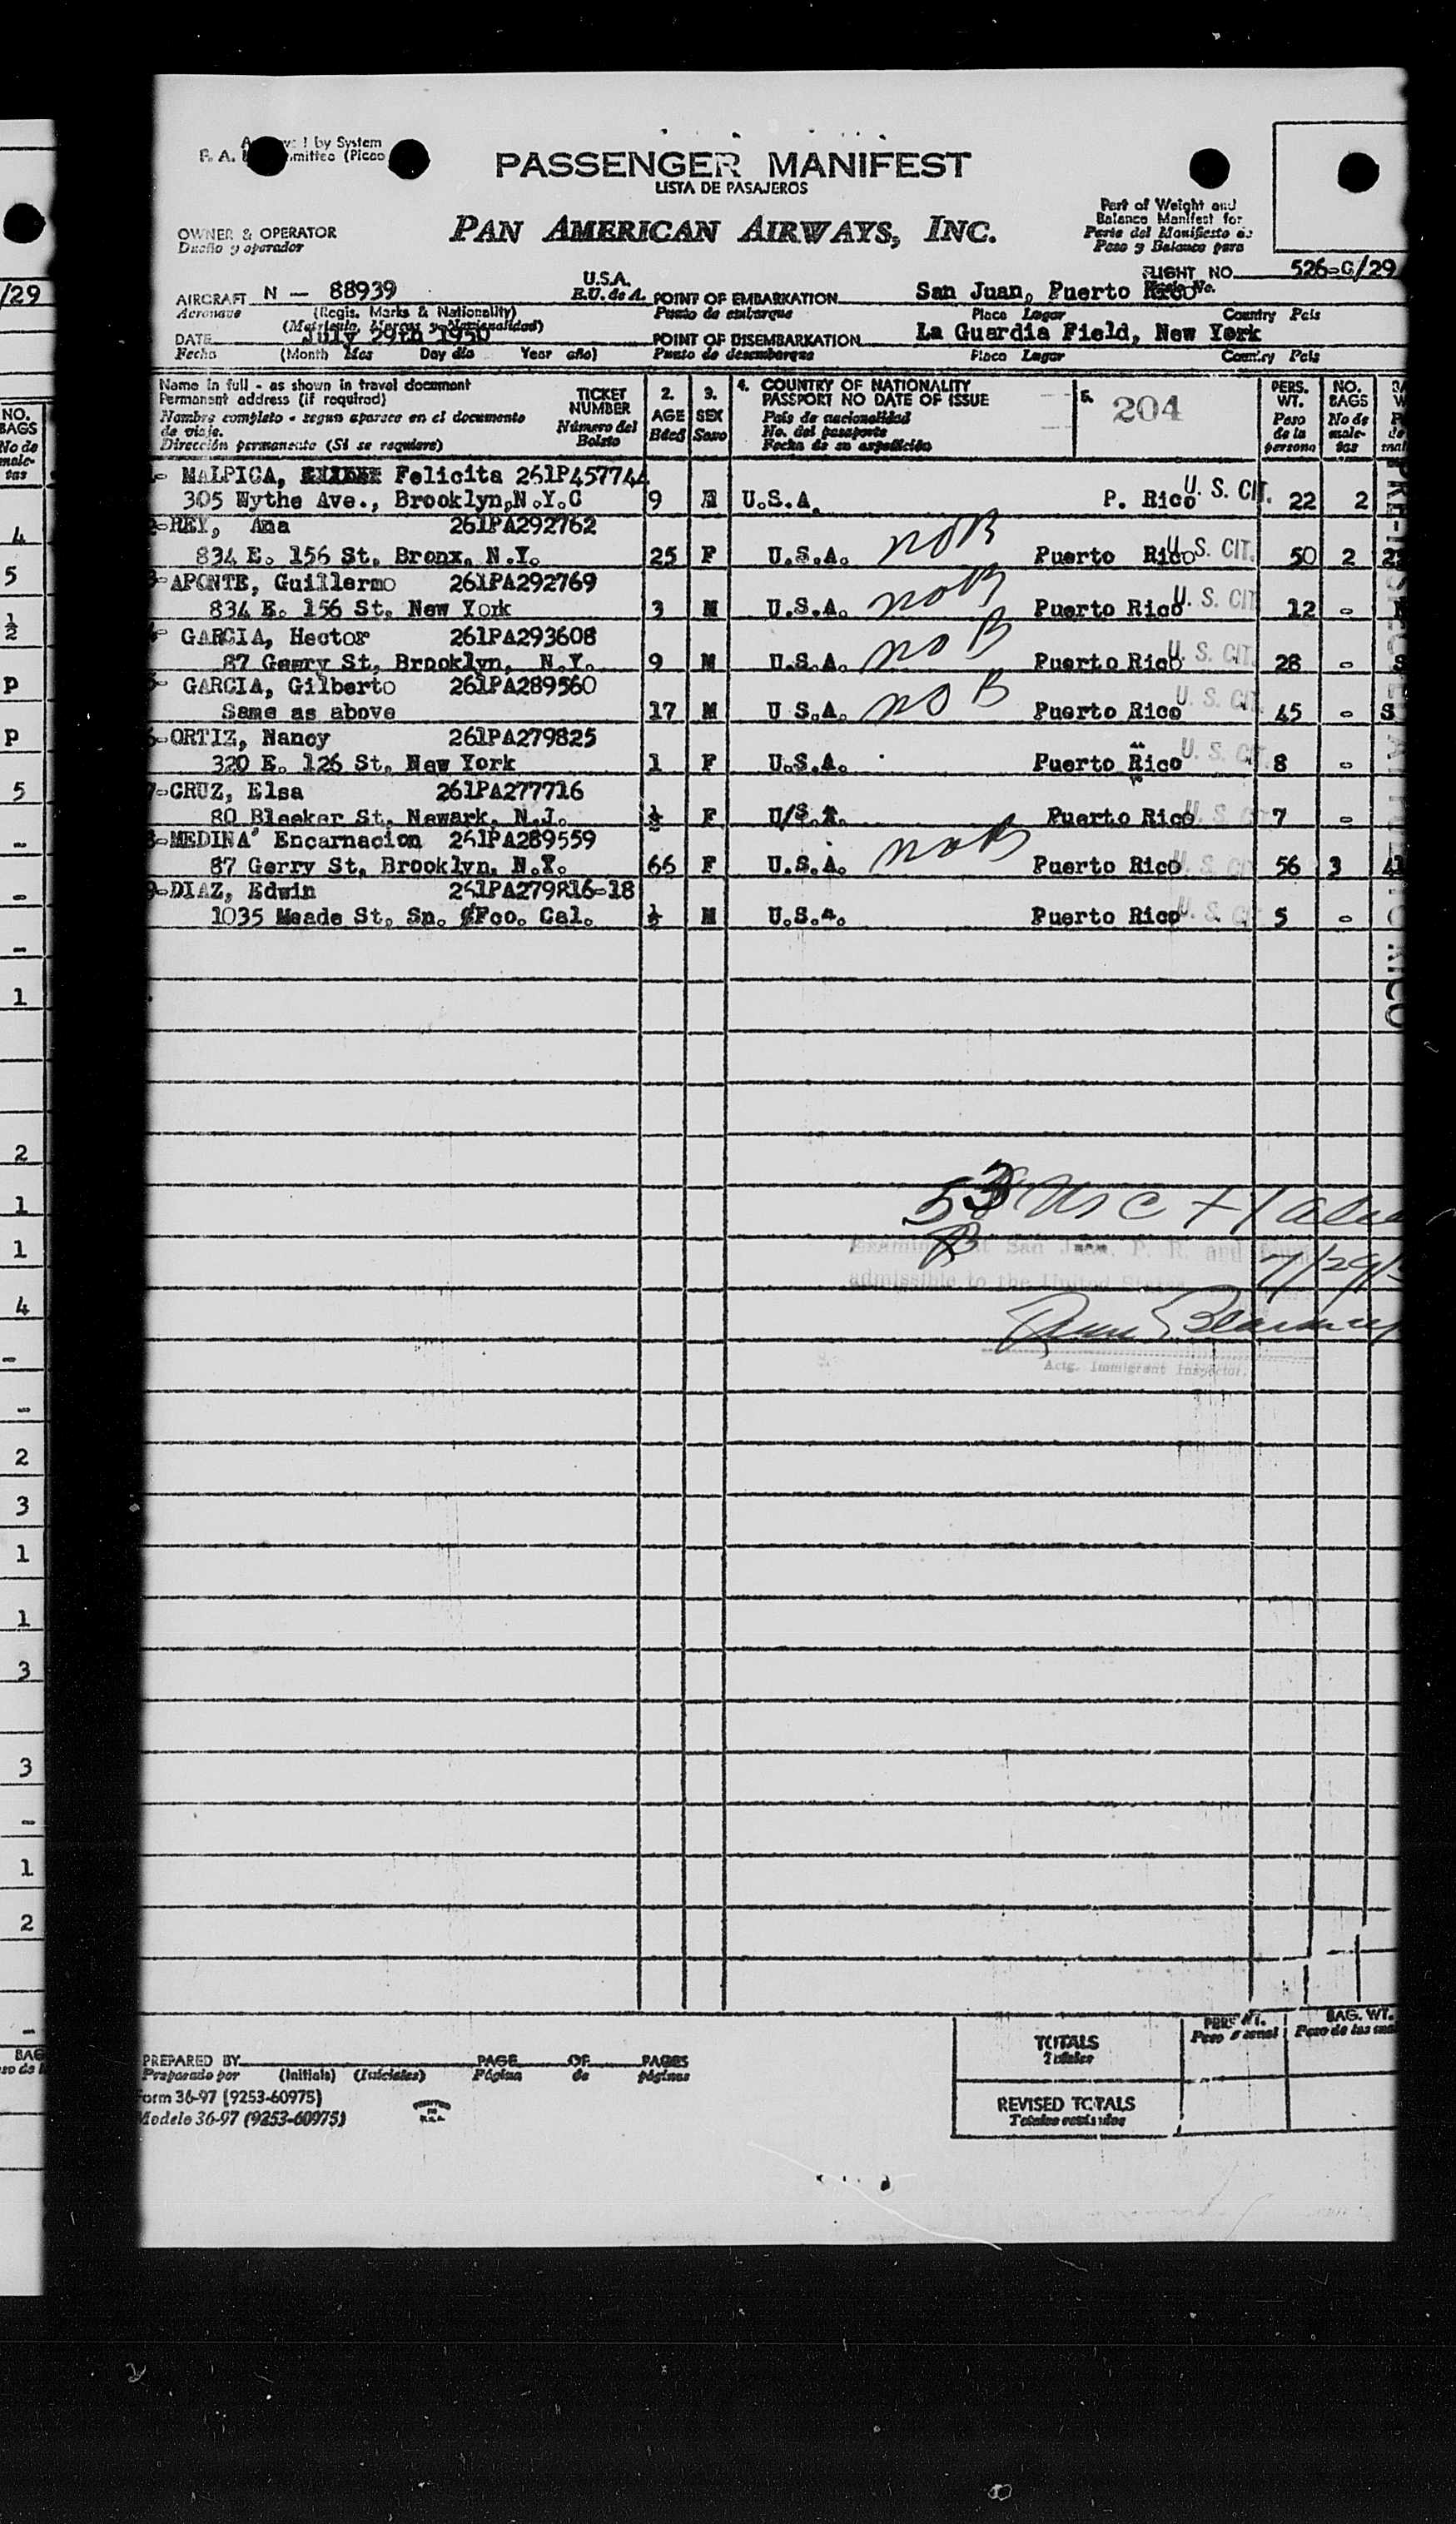 by System
PASSENGER MANIFEST
LISTA DE PASAJEROS
OWNER & OPERATOR
Dueño y operador
PAN AMERICAN AIRWAYS, INC.
Part of Weight and
Balance Manifest for
Parte del Manifiesto de
Peso y Balance para
FLIGHT NO. 526-C/29
AIRCRAFT N - 88939 U.S.A. POINT OF EMBARKATION San Juan, Puerto Rico
Aeronave (Regis. Marks & Nationality) E.U. de A. Punto de embarque Place Lugar Country Pais
(Matricula, Marcas y Nacionalidad)
DATE July 29th 1950 POINT OF DISEMBARKATION La Guardia Field, New York
Fecha (Month Mes Day dia Year año) Punto de desembarque Place Lugar Country Pais
Name in full - as shown in travel document
Permanent address (if required)
Nombre completo - segun aparece en el documento
de viaje.
Dirección permanente (Si se requiere)
TICKET
NUMBER
Número del
Boleto
2.
AGE
Edad
3.
SEX
Sexo
4. COUNTRY OF NATIONALITY
PASSPORT NO DATE OF ISSUE
País de nacionalidad
No. del pasaporte
Fecha de su expedición
5. 204
PERS.
WT.
Peso
de la
persona
NO.
BAGS
No de
male-
tas
MALPICA, Felicita 261P457744
305 Wythe Ave., Brooklyn,N.Y.C 9 U.S.A. P. Rico U. S. CIT. 22 2
REY, Ana 261PA292762
834 E. 156 St, Bronx, N.Y. 25 F U.S.A. no B Puerto Rico U. S. CIT. 50 2
APONTE, Guillermo 261PA292769
834 E. 156 St, New York 3 M U.S.A. no B Puerto Rico U. S. CIT 12 -
GARCIA, Hector 261PA293608
87 Geery St, Brooklyn, N.Y. 9 M U.S.A. no B Puerto Rico U. S. CIT. 28 -
GARCIA, Gilberto 261PA289560
Same as above 17 M U S.A. no B Puerto Rico U. S. CIT. 45 - S
6-ORTIZ, Nancy 261PA279825
320 E. 126 St, New York 1 F U.S.A. Puerto Rico U. S. CIT. 8 -
7-CRUZ, Elsa 261PA277716
80 Bleeker St, Newark, N.J. ½ F U/S.A. Puerto Rico U. S. CIT 7 -
8-MEDINA' Encarnacion 261PA289559
87 Gerry St, Brooklyn, N.Y. 66 F U.S.A. no B Puerto Rico U. S. CIT 56 3
9-DIAZ, Edwin 261PA279816-18
1035 Meade St, Sn. Fco. Cal. ½ M U.S.A. Puerto Rico U. S. CIT 5 -
53 USC + 1 alien
Examined at San Juan, P. R. and found
admissible to the United States 7/29/
Actg. Immigrant Inspector.
PREPARED BY PAGE OF PAGES
Preparado por (Initials) (Iniciales) Página de páginas
Form 36-97 (9253-60975)
Modelo 36-97 (9253-60975)
PRINTED
IN
U.S.A.
TOTALS
Totales
PERS WT.
BAG. WT.
REVISED TOTALS
/29
NO.
BAGS
No de
male-
tas
4
5
½
P
P
5
-
-
-
1
2
1
1
4
-
-
2
3
1
1
3
3
-
1
2
-